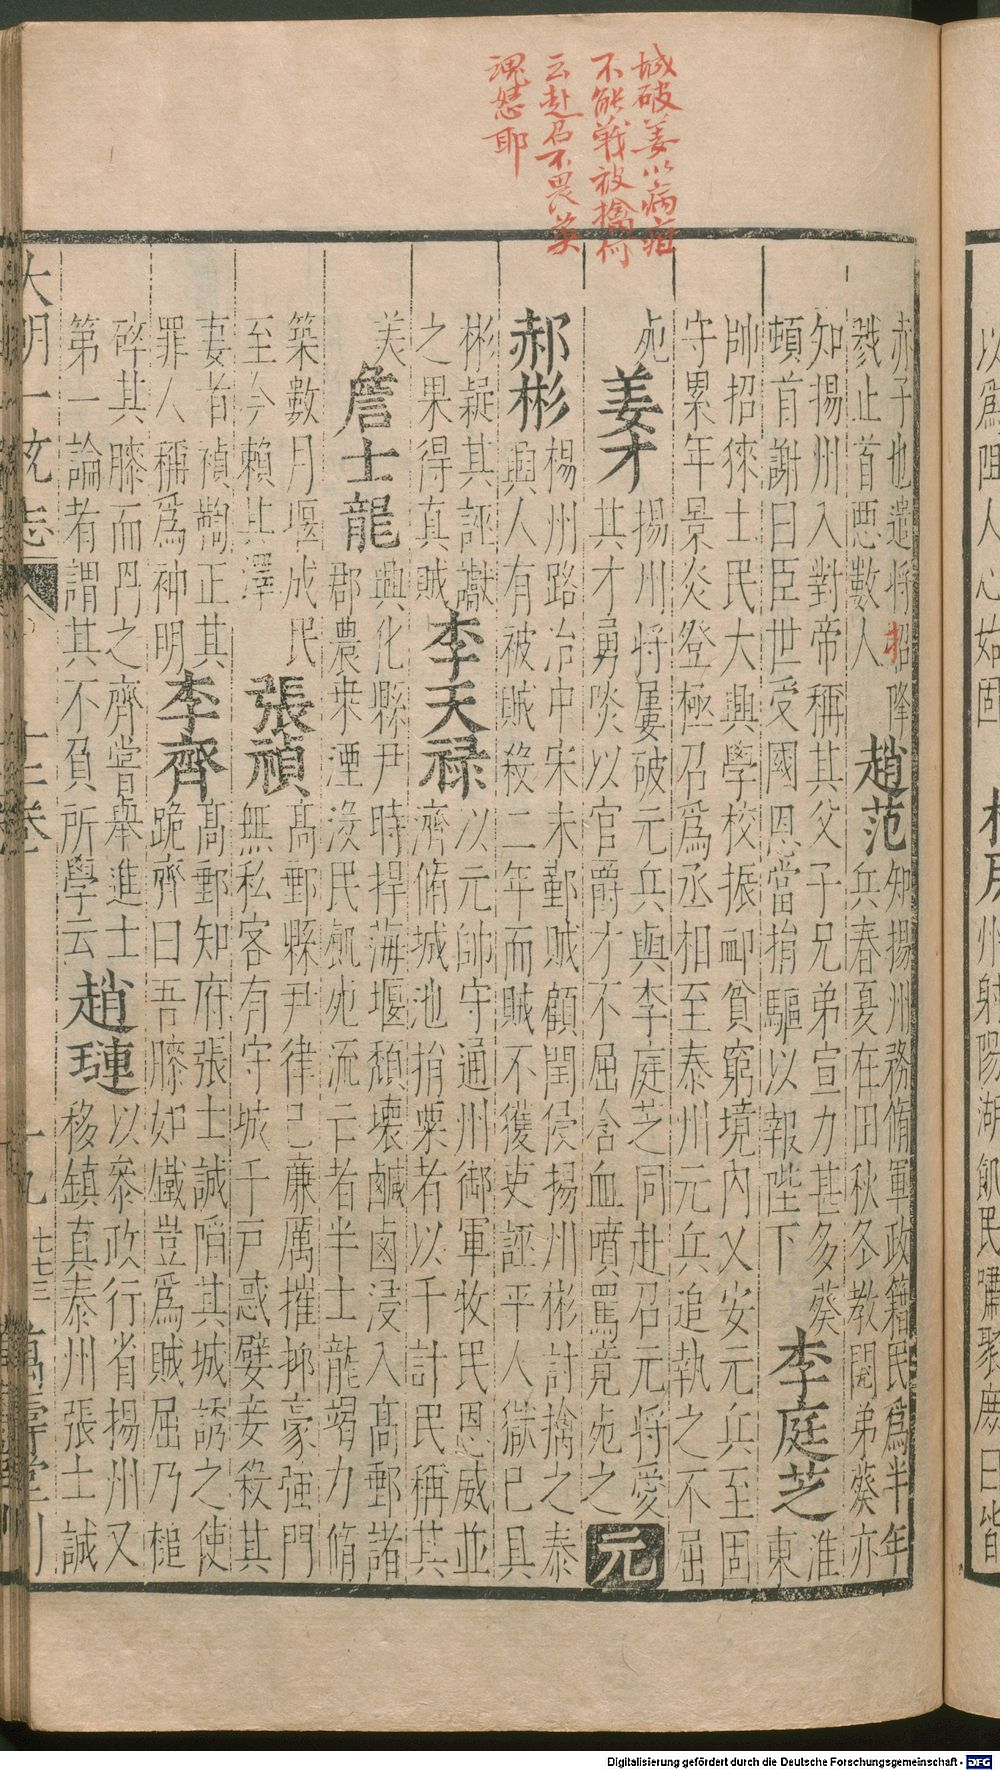 城破姜以病疽
不能戰被擒何
云赴召不畏英
魂怒耶
赤子也遣將招降
戮止首惡數人
趙范
知揚州務脩軍政籍民爲半年
兵春夏在田秋冬教閱弟葵亦
知揚州入對帝稱其父子兄弟宣力甚多葵
頓首謝曰臣世受國恩當捐驅以報陛下
李庭芝
淮
東
帥招徠士民大興學校振䘏貧窮境內乂安元兵至固
守累年景炎登極召爲丞相至泰州元兵追執之不屈
死
姜才
揚州將屢破元兵與李庭芝同赴召元將愛
其才勇啖以官爵才不屈含血噴罵竟死之
元
郝彬
楊州路治中宋末鄞賊顧閏侵揚州彬討擒之泰
興人有被賊殺二年而賊不獲吏誣平人獄已具
彬疑其誣讞
之果得真賊
李天祿
以元帥守通州御軍牧民恩威並
濟脩城池捐粟者以千計民稱其
美
詹士龍
興化縣尹時捍海堰頹壞鹹鹵浸入高郵諸
郡農桒湮没民飢死流亡者半士龍竭力脩
築數月堰成民
至今賴其澤
張禎
高郵縣尹律己廉厲摧抑豪强門
無私客有守城千戶惑嬖妾殺其
妻者禎鞫正其
罪人稱爲神明
李齊
高郵知府張士誠陷其城誘之使
跪齊曰吾膝如鐵豈爲賊屈乃槌
碎其膝而冎之齊嘗舉進士
第一論者謂其不負所學云
趙璉
以參政行省揚州又
移鎮真泰州張士誠
大明一統志 十二卷 十九 七七三 萬壽堂刊
以爲阻人心始固
州射陽湖飢民嘯聚庶曰皆
Digitalisierung gefördert durch die Deutsche Forschungsgemeinschaft - DFG